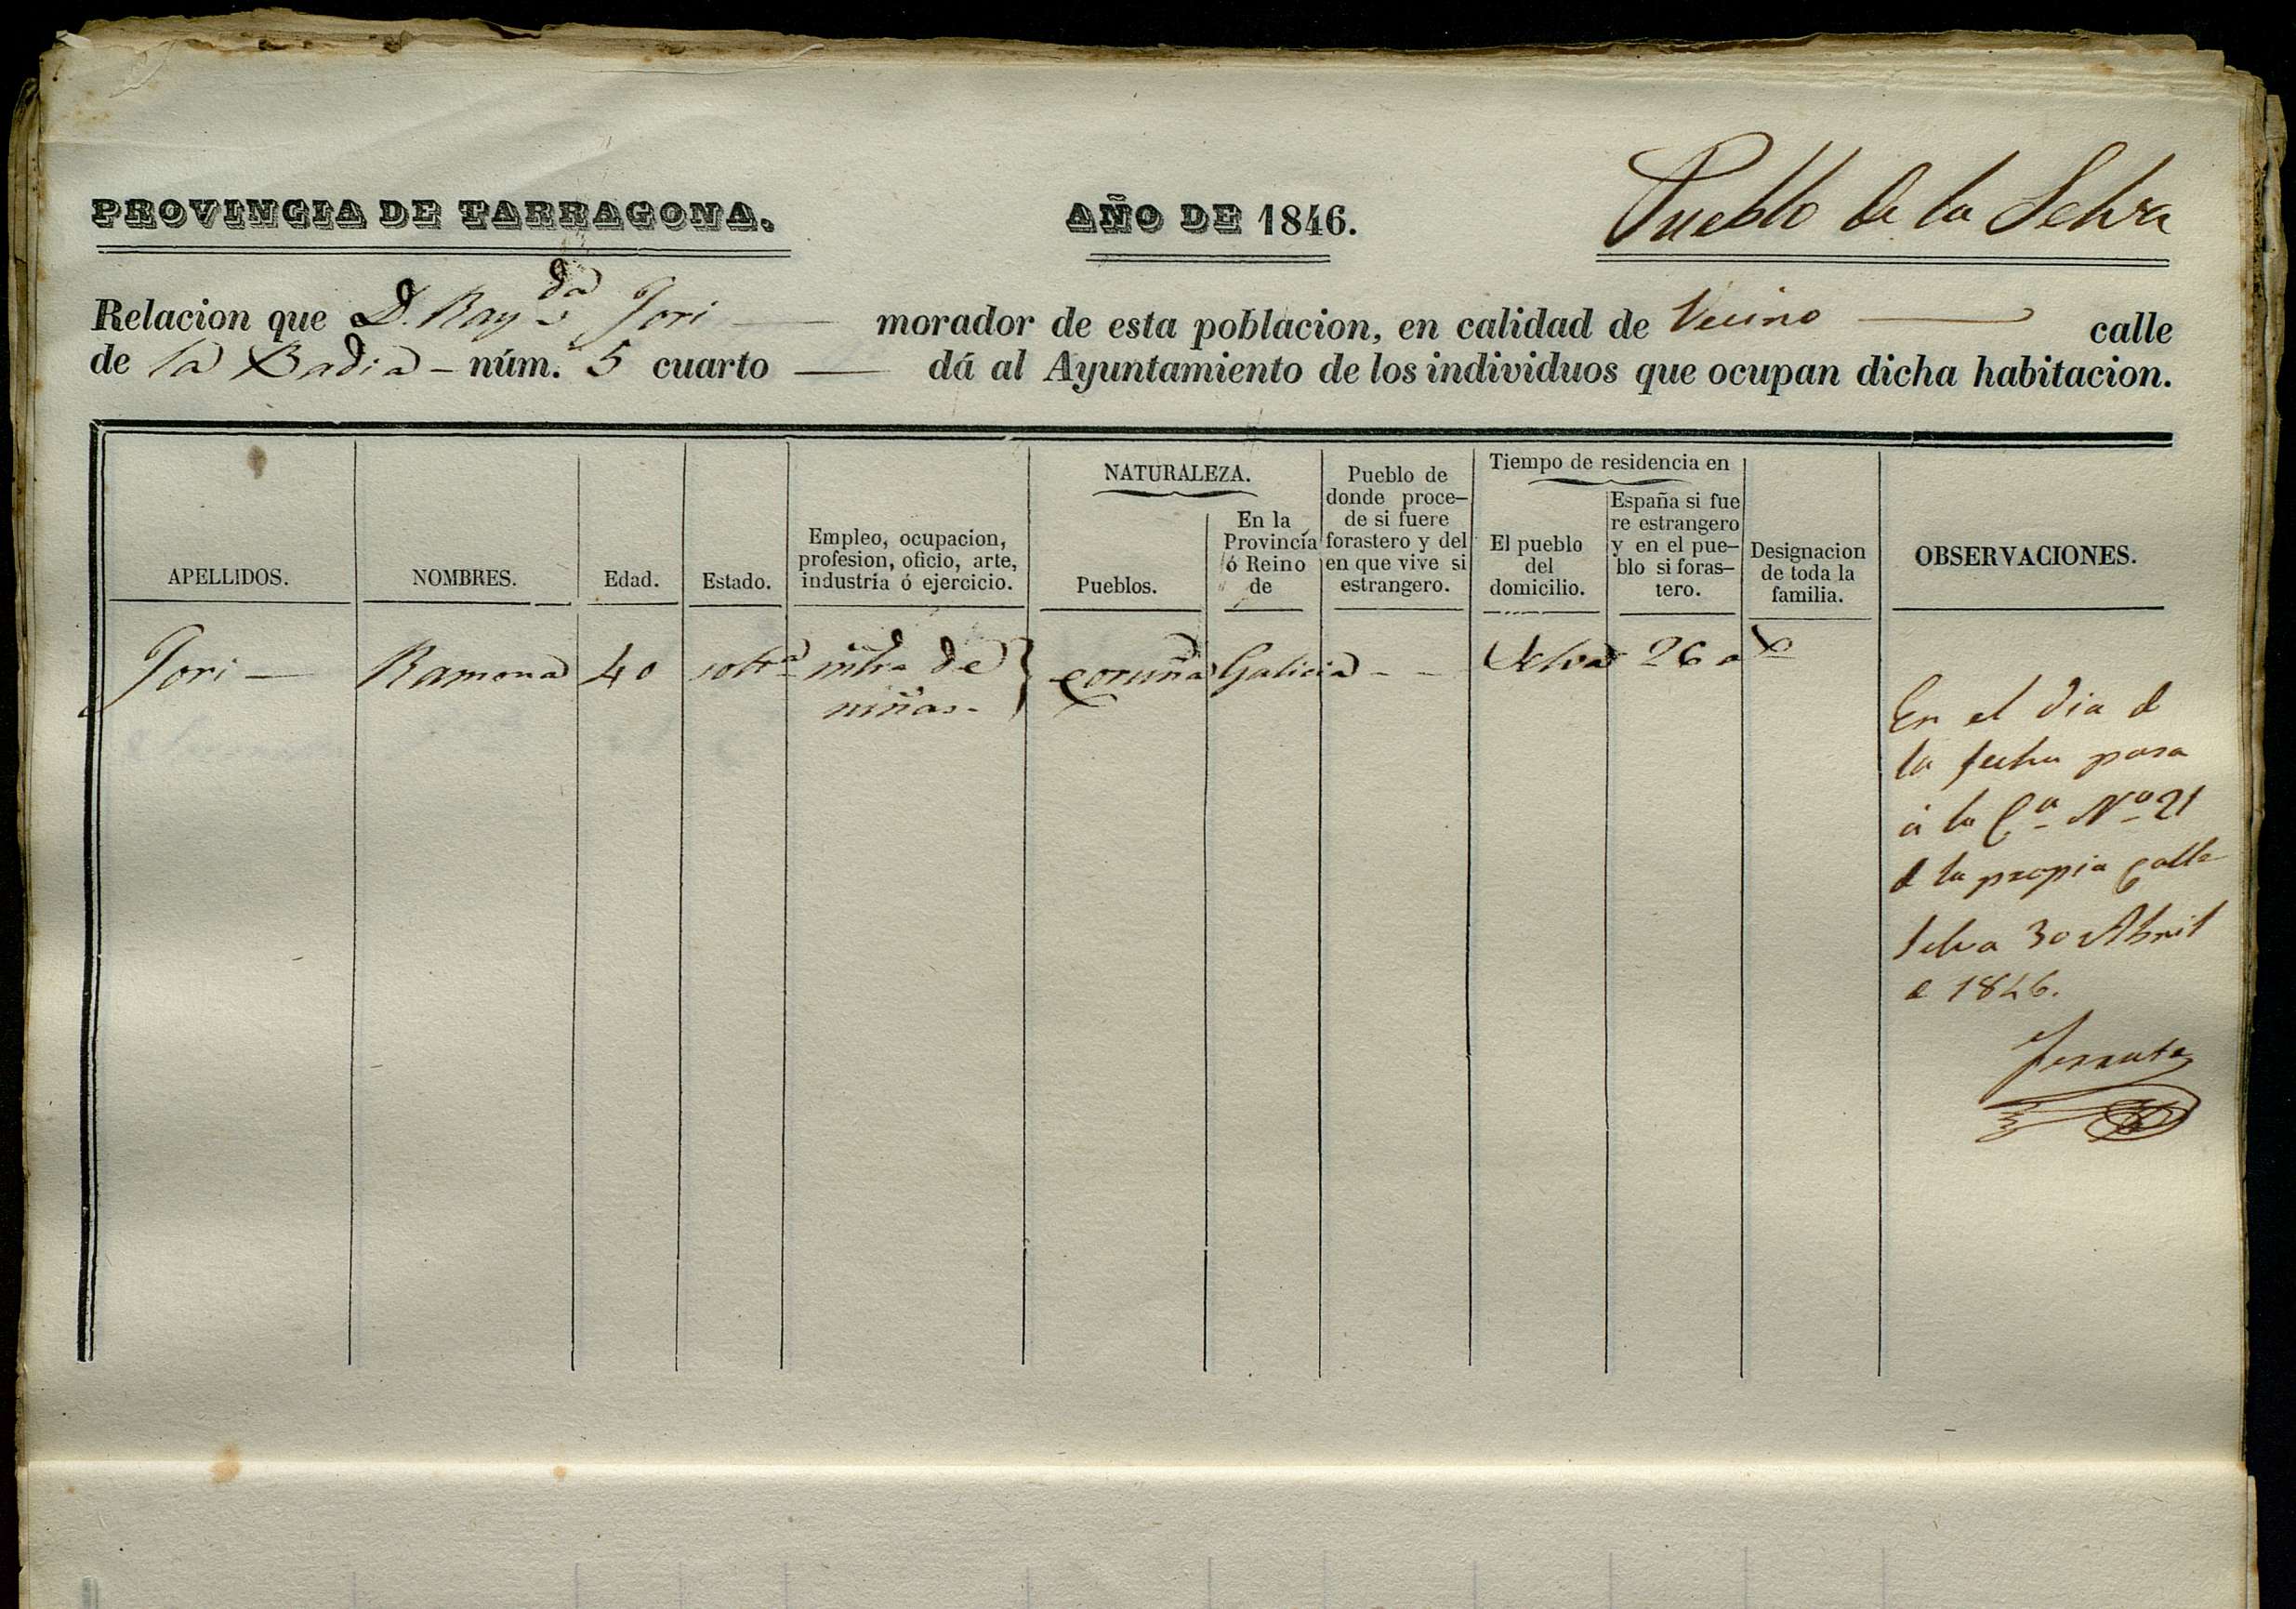 PROVINCIA DE TARRAGONA.
AÑO DE 1846.
Pueblo de la Selva
Relacion que D. Ray.da Jori — morador de esta poblacion, en calidad de Vecino — calle
de la Badia - núm. 5 cuarto — dá al Ayuntamiento de los individuos que ocupan dicha habitacion.
APELLIDOS.
NOMBRES.
Edad.
Estado.
Empleo, ocupacion,
profesion, oficio, arte,
industria ó ejercicio.
NATURALEZA.
Pueblos.
En la
Provincia
ó Reino
de
Pueblo de
donde proce-
de si fuere
forastero y del
en que vive si
estrangero.
Tiempo de residencia en
El pueblo
del
domicilio.
España si fue
re estrangero
y en el pue-
blo si foras-
tero.
Designacion
de toda la
familia.
OBSERVACIONES.
Jori — Ramona 40 solt.a mtra de } coruña Galicia - - Selva 26 a
niñas-
En el dia d
la fecha pasa
á la C.a N.o 21
d la propia Calle
Selva 30 Abril
d 1846.
Ferrate